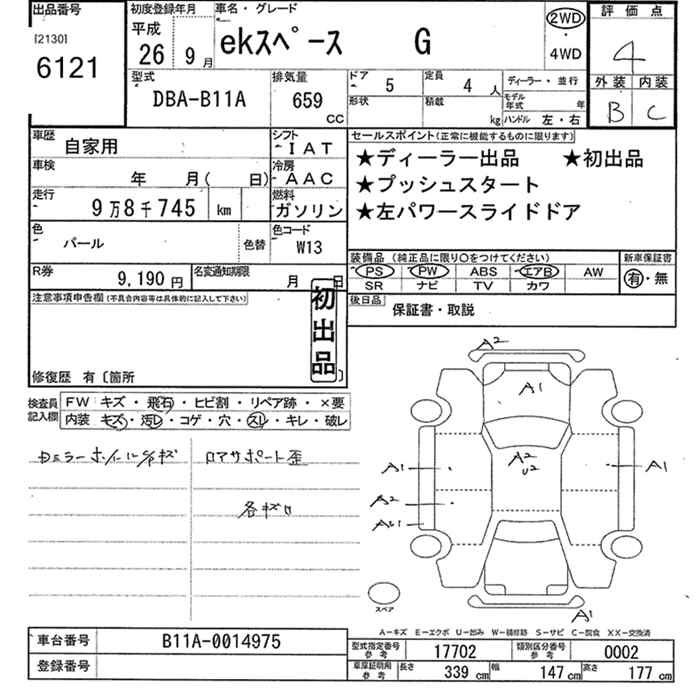 出品番号 初度登録年月 車名・グレード 評価点
[2130] 平成 ekスペース G 2WD
6121 26年 9月 ・ 4
4WD
型式 排気量 ドア 5 定員 4人 ディーラー・並行 外装 内装
DBA-B11A 659 CC 形状 積載 kg モデル年式 年 B C
ハンドル 左・右
車歴 自家用 シフト IAT セールスポイント(正常に機能するものに限ります)
車検 年 月( 日) 冷房 AAC ★ディーラー出品 ★初出品
走行 9万8千745 km 燃料 ガソリン ★プッシュスタート
★左パワースライドドア
色 パール 色替 色コード W13
装備品 (純正品に限り〇をつけてください) 新車保証書
R券 9,190円 名変通知期限 月 日 PS PW ABS エアB AW 有・無
SR ナビ TV カワ
注意事項申告欄(不具合内容等は具体的に記入して下さい) 初出品 後日品 保証書・取説
修復歴 有〔箇所 〕
検査員記入欄 FW キズ・飛石・ヒビ割・リペア跡・×要
内装 キズ・汚レ・コゲ・穴・スレ・キレ・破レ
ロアサポート歪
A2
A1
A2
U2
A1
A1
A2
A1
スペア
A-キズ E-エクボ U-凹み W-補修跡 S-サビ C-腐食 XX-交換済
車台番号 B11A-0014975 型式指定番号 参考 17702 類別区分番号 参考 0002
登録番号 車庫証明用 参考 長さ 339cm 幅 147cm 高さ 177cm